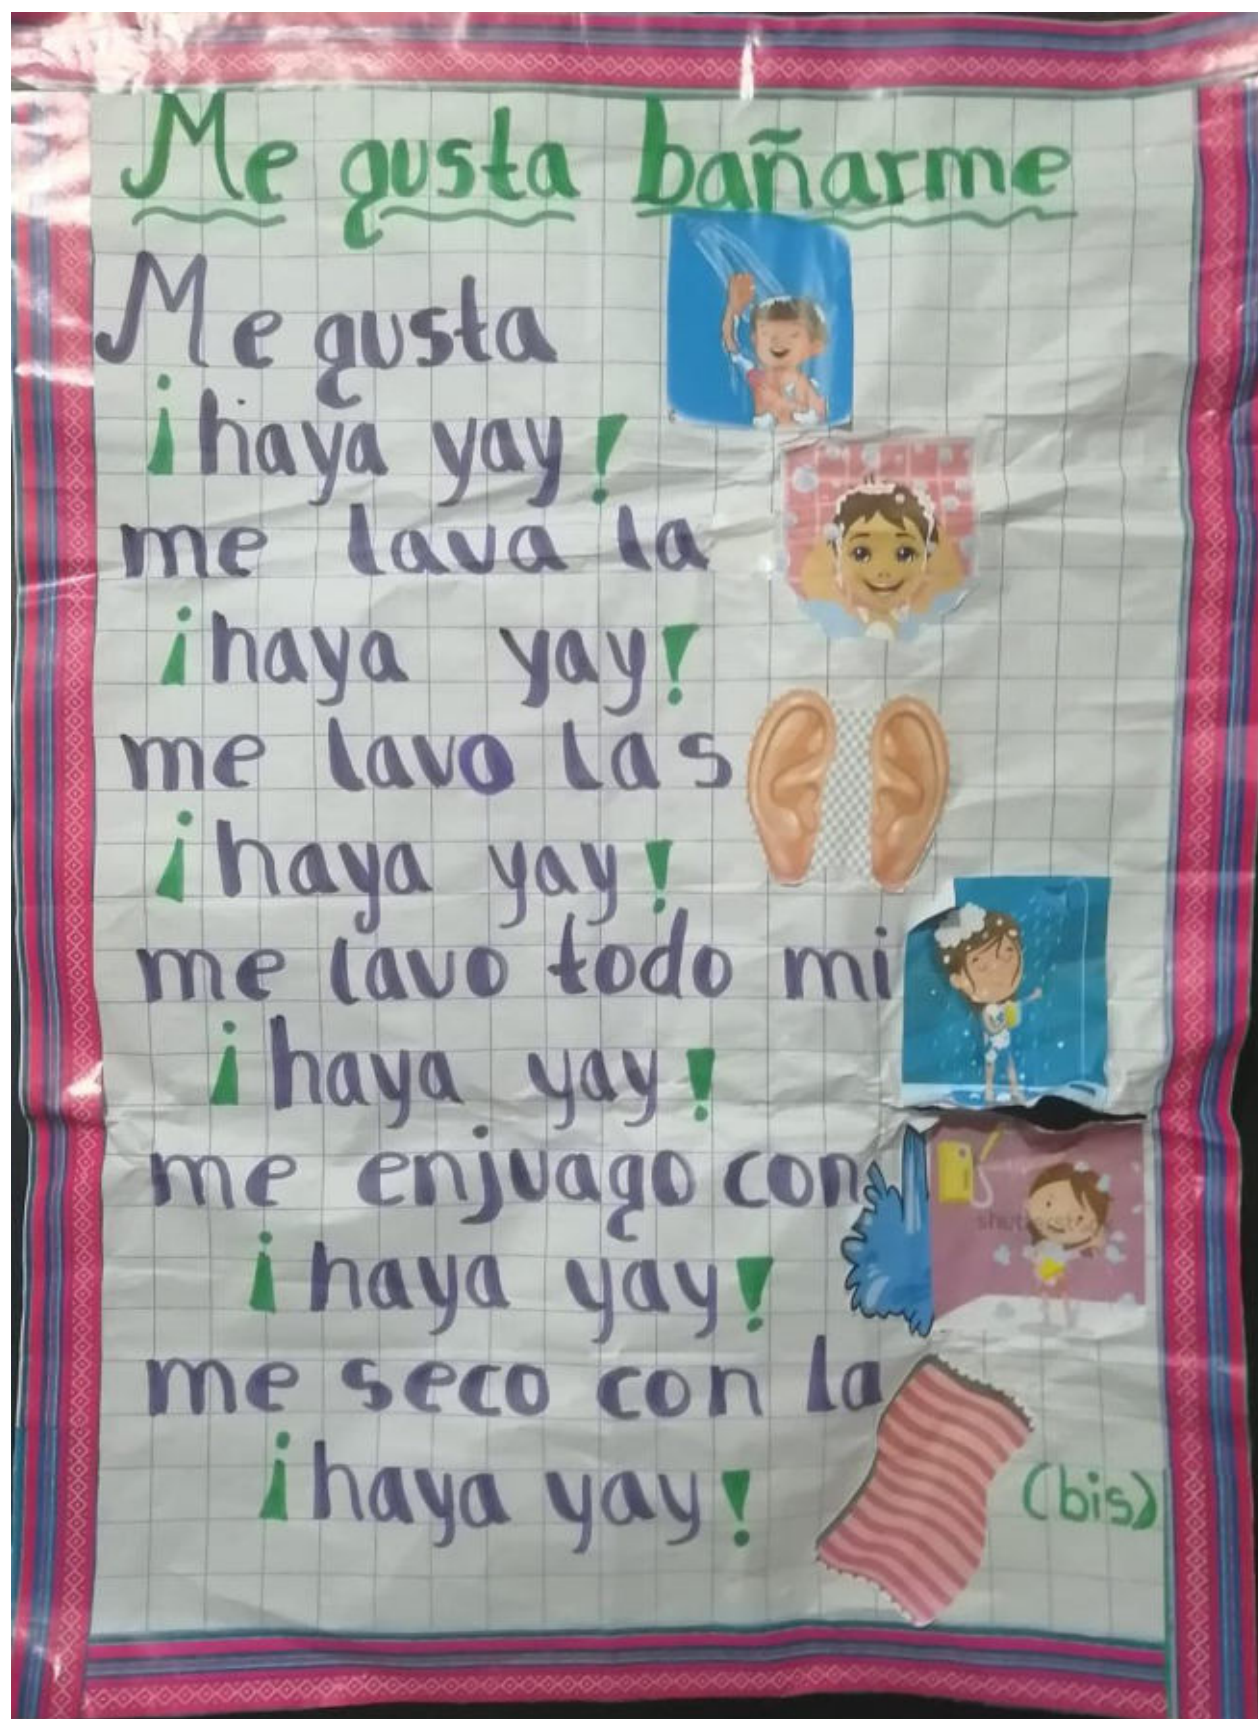 Me gusta bañarme
Me gusta
¡haya yay!
me lava la
¡haya yay!
me lavo las
¡haya yay!
me lavo todo mi
¡haya yay!
me enjuago con
shutterstock
¡haya yay!
me seco con la
¡haya yay!
(bis)